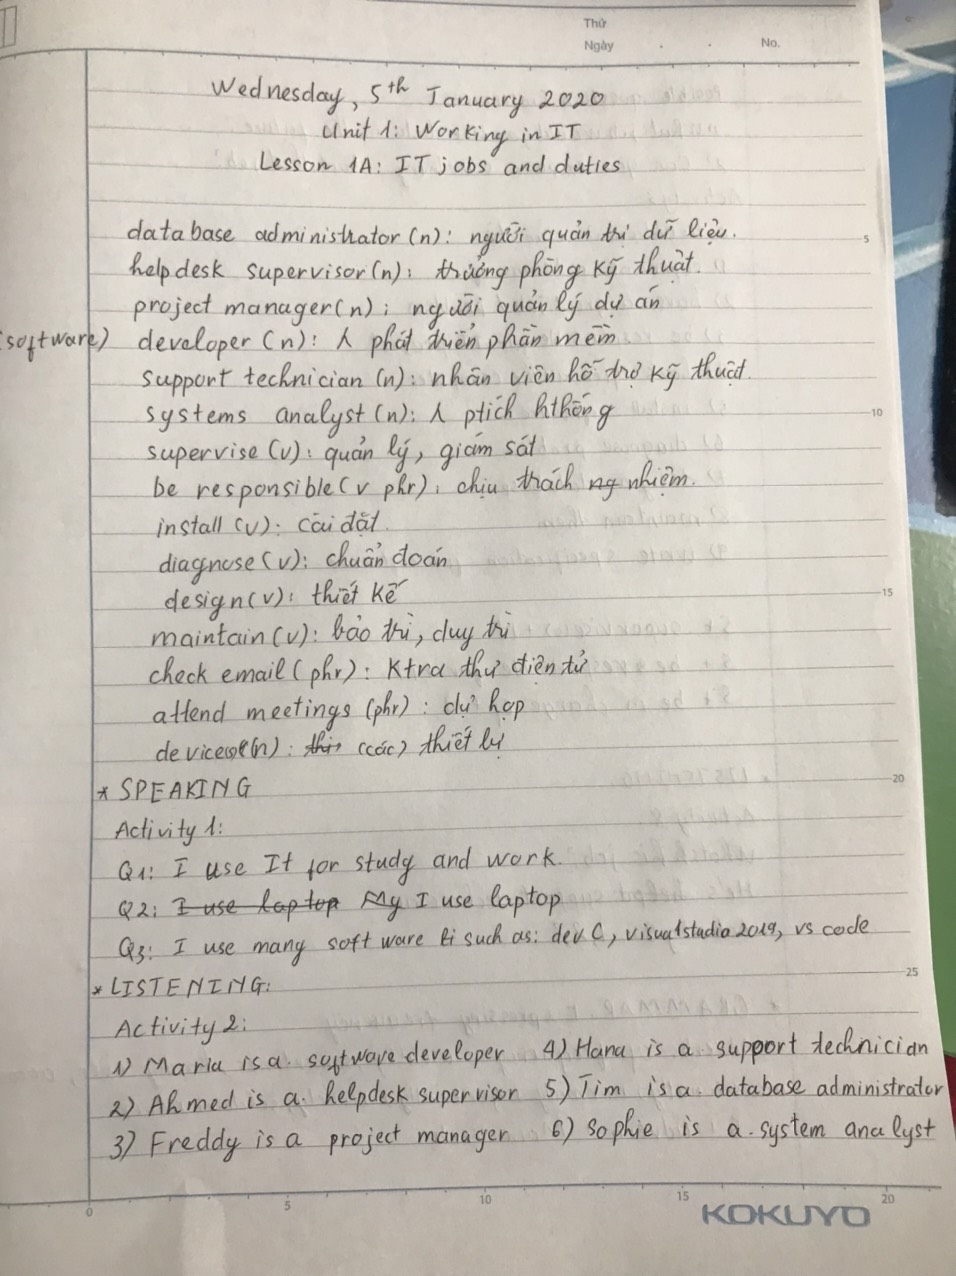 Thứ
Ngày . . No.
Wednesday, 5th January 2020
Unit 1: Working in IT
Lesson 1A: IT jobs and duties
database administrator (n): người quản trị dữ liệu.
5
helpdesk supervisor (n): trưởng phòng kỹ thuật.
project manager (n): người quản lý dự án
(software) developer (n): λ phát triển phần mềm
support technician (n): nhân viên hỗ trợ kỹ thuật.
systems analyst (n): λ ptích hthống
10
supervise (v): quản lý, giám sát
be responsible (v phr): chịu trách ng nhiệm.
install (v): cài đặt.
diagnose (v): chuẩn đoán
design (v): thiết kế
15
maintain (v): bảo trì, duy trì
check email (phr): ktra thư điện tử
attend meetings (phr): dự họp
(n): (các) thiết bị
* SPEAKING
20
Activity 1:
Q1: I use It for study and work.
Q2: I use laptop My I use laptop
Q3: I use many soft ware such as: dev C, visualstudio 2019, vs code
* LISTENING:
25
Activity 2:
1) Maria is a software developer 4) Hana is a support technician
2) Ahmed is a helpdesk supervisor 5) Tim is a database administrator
3) Freddy is a project manager 6) Sophie is a system analyst
0 5 10 15 20
KOKUYO